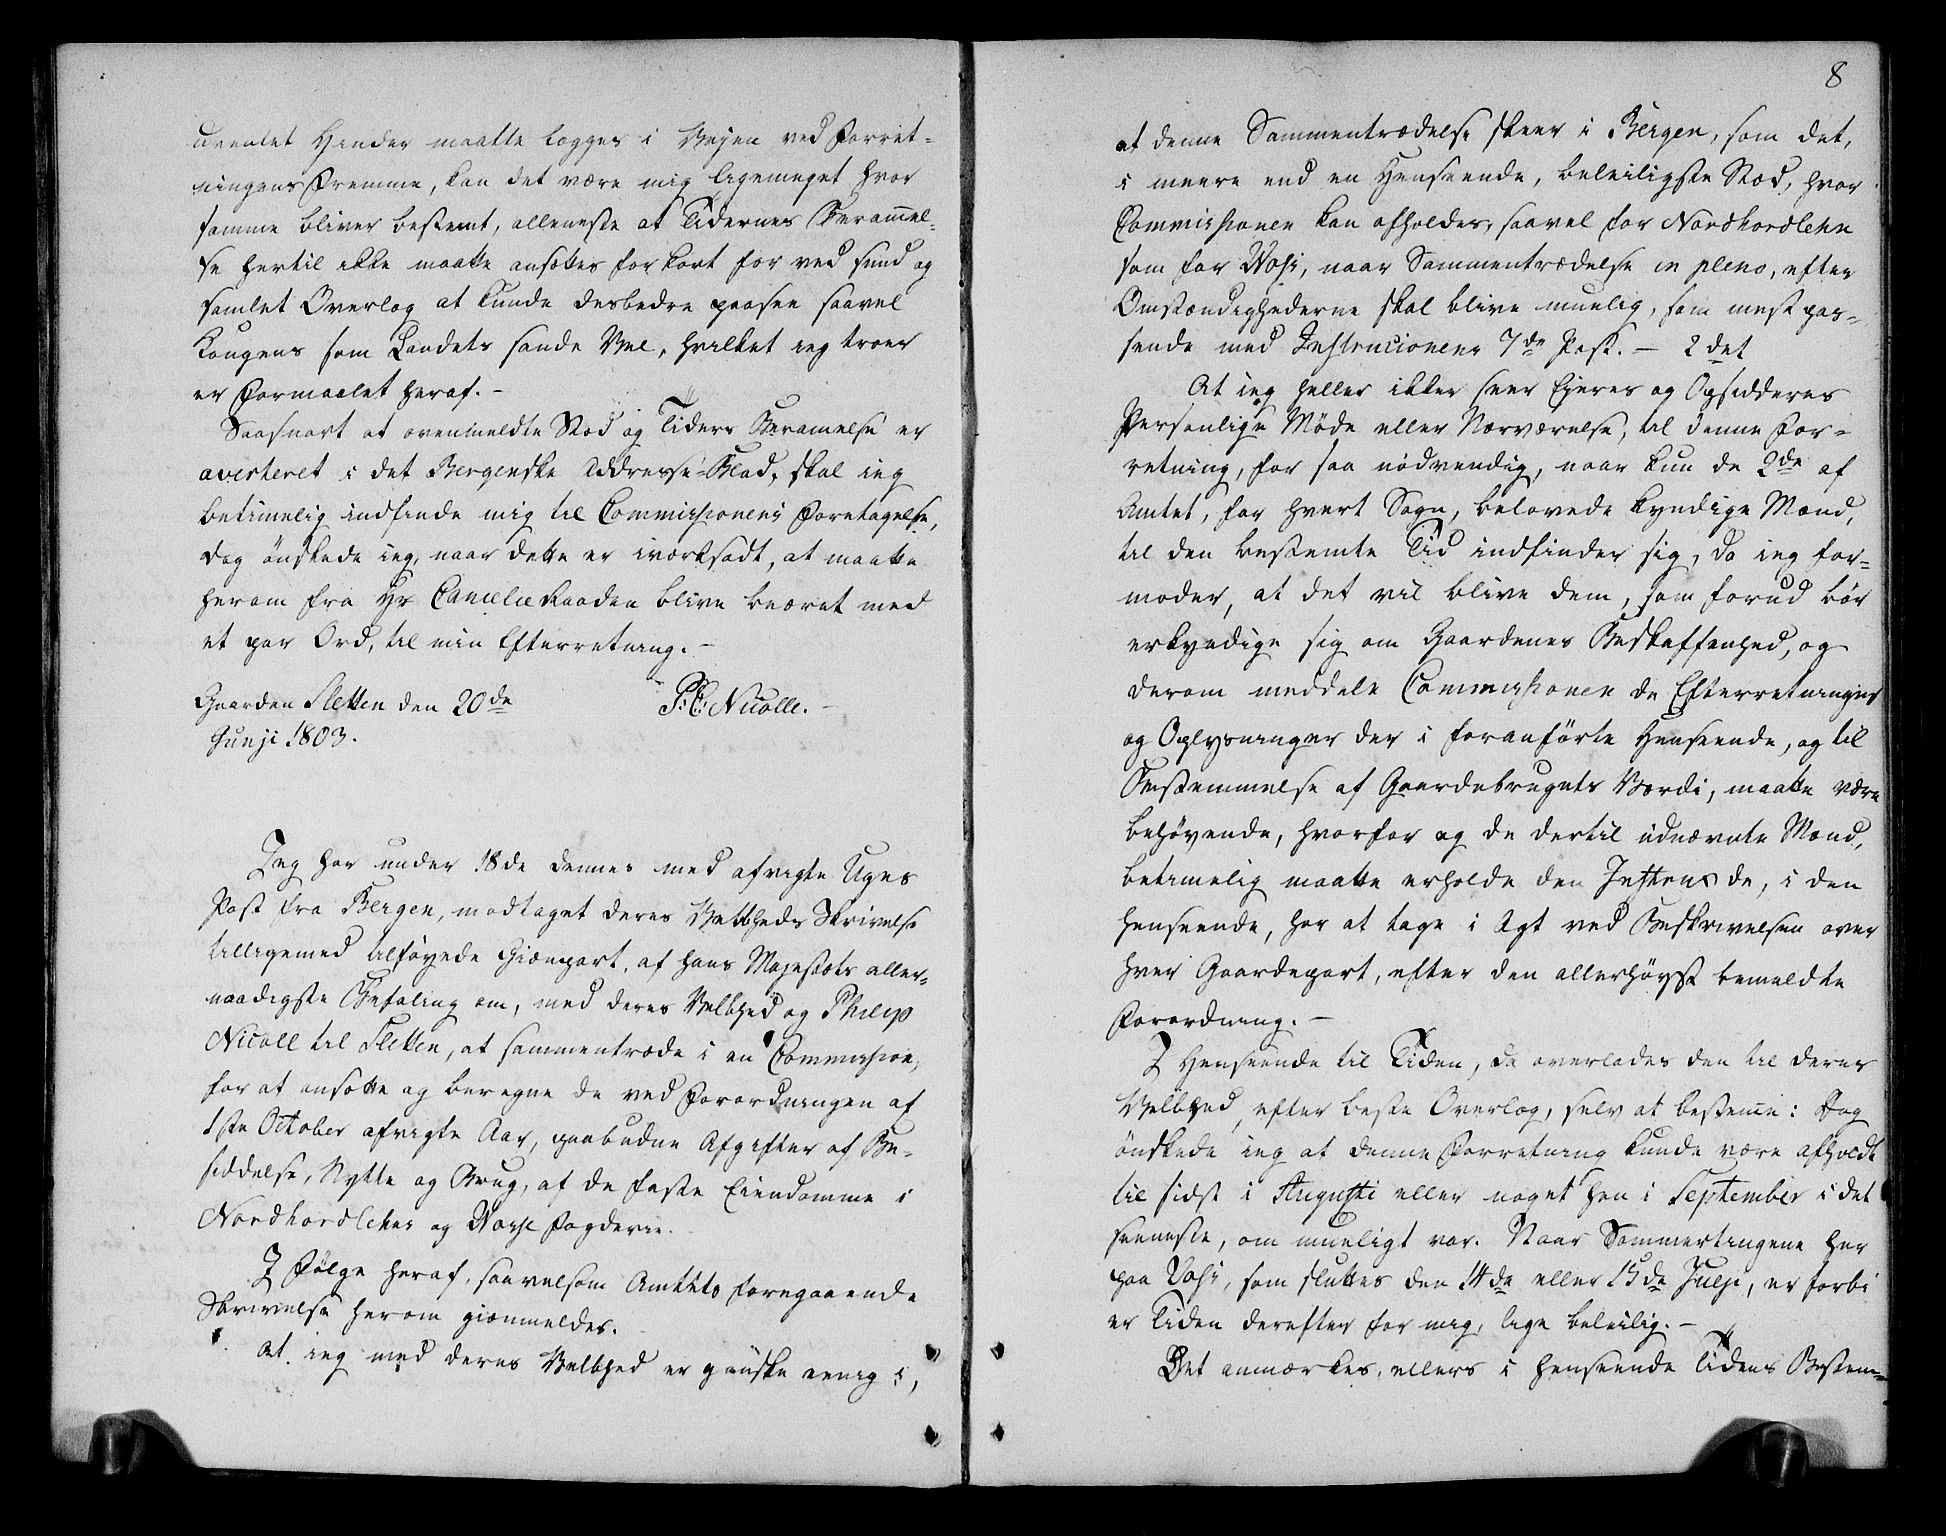 uventet Hinder maatte legges i Vejen ved Forret-
ningens Fremme, kan det være mig ligemeget hvor
samme bliver bestemt, alleneste at Tidernes Beram̄el-
se hertil ikke maatte ansættes for kort for ved sund og
samlet Overlæg at kunde desbedre paasee saavel
Kongens som Landets sande Vel, hvilket ieg troer
er Formaalet heraf. –
Saasnart at ovenmeldte Stæd og Tiders Beramelse er
averteret i det Bergenske Addresse-Blad, skal ieg
betimelig indfinde mig til Commissionens Foretagelse,
dog ønskede ieg, naar dette er iværksadt, at maatte
herom fra Hr Cancelieraaden blive beæret med
et par Ord, til min Efterretning. –
Gaarden Sletten den 20de P: C: Nicolle. –
Junji 1803.
Jeg har under 18de dennes med afvigte Uges
Post fra Bergen, modtaget deres Velbheds Skrivelse
tilligemed tilføyede Gienpart, af hans Majestæts aller-
naadigste Befaling om, med deres Velbhed og Philip
Nicoll til Sletten, at sammentræde i en Commission,
for at ansætte og beregne de ved Forordningen af
1ste October afvigte Aar, paabudne Afgifter af Be-
siddelse, Nytte og Brug, af de faste Eiendomme i
Nordhordlehns og Vorse Fogderie.
I Følge heraf, saavelsom Amtets foregaaende
Skrivelse herom gienmeldes.
1. At ieg med deres Velbhed er ganske eenig i,
8
at denne Sammentrædelse skeer i Bergen, som det,
i meere end en Henseende, beleiligste Stæd, hvor
Commissionen kan afholdes, saavel for Nordhordlehn
som for Voss, naar Sammentrædelse in pleno, efter
Omstændighederne skal blive muelig, som mest pas-
sende med Instructionens 7de Post. – 2det
At ieg heller ikke seer Ejeres og Opsidderes
Personlige Møde eller Nærværelse, til denne For-
retning, for saa nødvendig, naar kun de 2de af
Amtet, for hvert Sogn, belovede kyndige Mænd,
til den bestemte Tid indfinder sig, da ieg for-
moder, at det vil blive dem, som forud bør
erkyndige sig om Gaardenes Beskaffenhed, og
derom meddele Commissionen de Efterretninger
og Oplysninger der i foranførte Henseende, og til
Bestemmelse af Gaardebrugets Værdi, maatte være
behøvende, hvorfor og de dertil udnævnte Mænd,
betimelig maatte erholde den Instrux de, i den
henseende, har at tage i Agt ved Beskrivelsen over
hver Gaardepart, efter den allerhøyst bemeldte
Forordning. –
I Henseende til Tiden, da overlades den til deres
Velbhed, efter beste Overlæg, selv at bestem̄e: Dog
ønskede ieg at denne Forretning kunde være afholdt
til sidst i Augusti eller noget hen i September i det
seeneste, om mueligt var. Naar Sommertingene her
paa Voss, som sluttes den 14de eller 15de Julji, er forbi
er Tiden derefter for mig, lige beleilig. –
Det anmærkes, ellers i henseende Tidens Bestem-